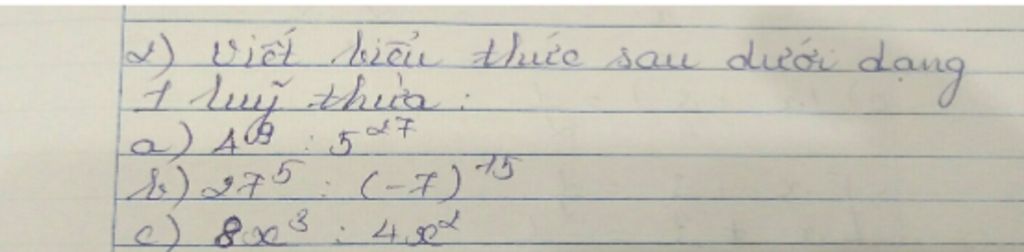 2) Viết biểu thức sau dưới dạng
1 luỹ thừa :
a) 4⁹ : 5²⁷
b) 27⁵ : (-7)¹⁵
c) 8x³ : 4x²